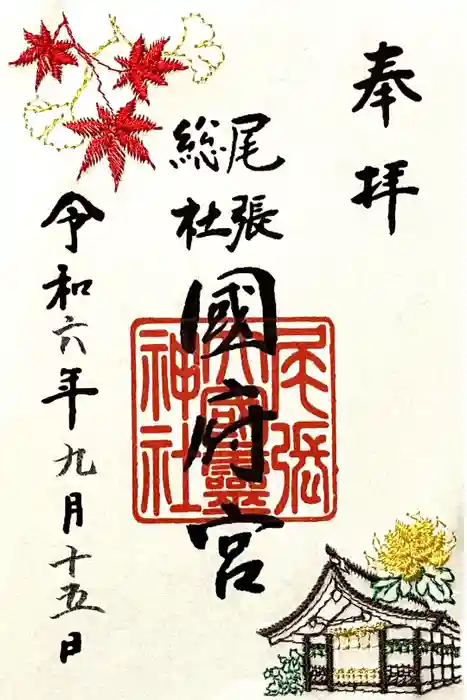 奉拝
尾張
総社
國府宮
尾張
大國靈
神社
令和六年九月十五日